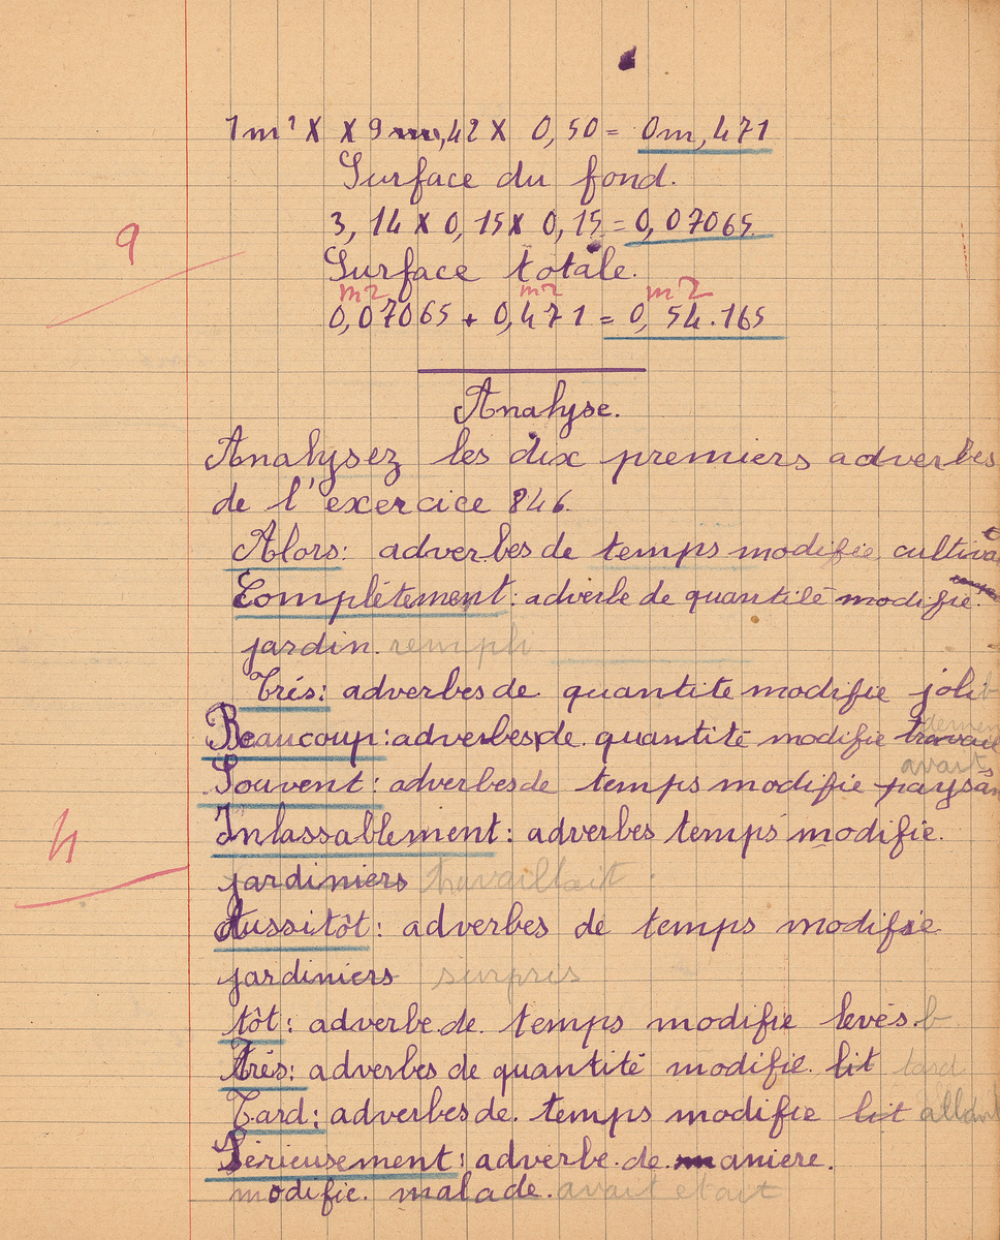 1m² X X 9 ,42 X 0,50 = 0m,471
Surface du fond.
3,14 X 0,15 X 0,15 = 0,07065
9
Surface totale.
m2 m2 m2
0,07065 + 0,471 = 0,54.165
Analyse.
Analysez les dix premiers adverbes
de l'exercice 846.
Alors: adverbes de temps modifie cultiva
Complètement: adverbe de quantité modifie
jardin. rempli
Très: adverbes de quantite modifie joli b
Beaucoup: adverbes de quantité modifie travail
avait
Souvent: adverbes de temps modifie paysan
Inlassablement: adverbes temps modifie.
4
jardiniers travaillait.
Aussitôt: adverbes de temps modifie
jardiniers surpris
tôt: adverbe de temps modifie levés. b
très: adverbes de quantité modifie. lit tard
Tard: adverbes de. temps modifie lit allant
Sérieusement: adverbe. de. maniere.
modifie. malade. avait etait